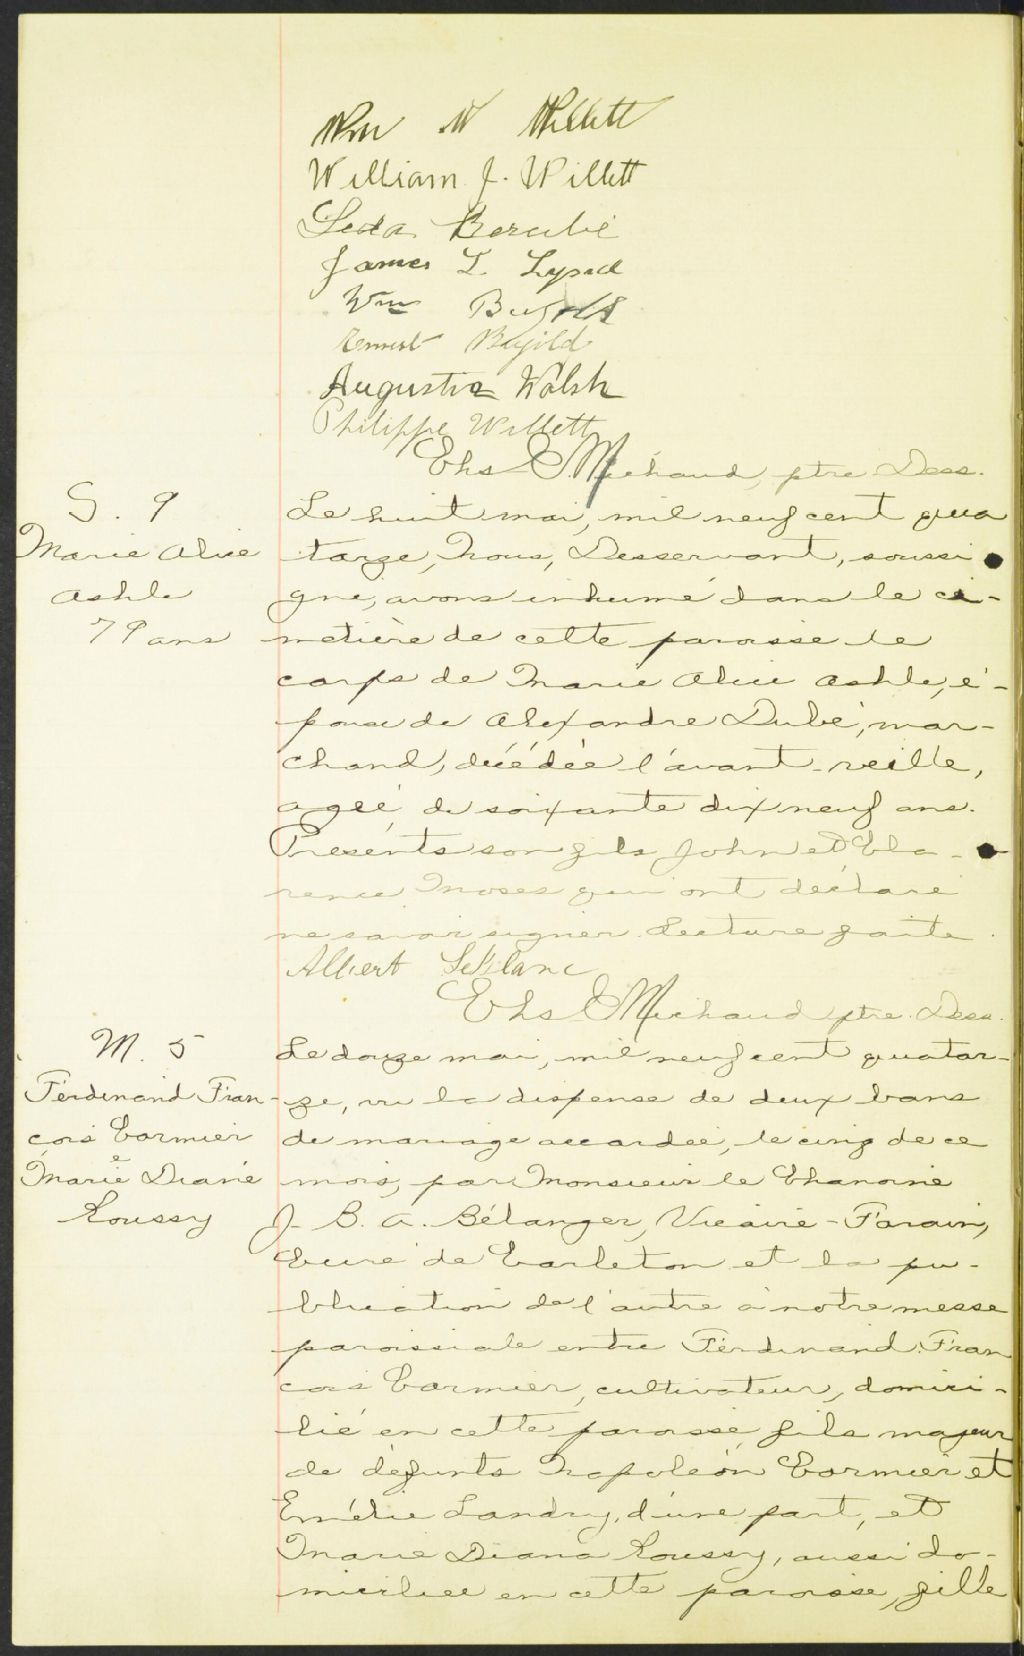 Wm W Willett
William J. Willett
Leda Berubé
James L
Wm
Ernest Bujold
Augustin Walsh
Philippe Willett
Chs E. Michaud, ptre Dess.
S. 9
Marie Alice
Ashle
79 ans
Le huit mai, mil neuf cent qua
torze, Nous, Desservant, soussi
gné, avons inhumé dans le ci-
metière de cette paroisse le
corps de Marie Alice Ashle, é-
pouse de Alexandre Dubé, mar-
chand, décédée l'avant-veille,
agée de soixante dix neuf ans.
Presents son fils John et Cla-
rence Moses qui ont déclaré
ne savoir signer. Lecture faite.
Albert LeBlanc
Chs E Michaud ptre. Dess.
M. 5
Ferdinand Fran-
çois Cormier
e
Marie Diané
Roussy
Le douze mai, mil neuf cent quator-
ze, vu la dispense de deux bans
de mariage accordée, le cinq de ce
mois, par Monsieur le Chanoine
J. B. A. Bélanger, Vicaire-Forain,
Curé de Carleton et la pu-
blication de l'autre à notre messe
paroissiale entre Ferdinand Fran
cois Cormier, cultivateur, domici-
lié en cette paroisse, fils majeur
de défunts Napoléon Cormier et
Emélie Landry, d'une part, et
Marie Diana Roussy, aussi do-
miciliee en cette paroisse, fille